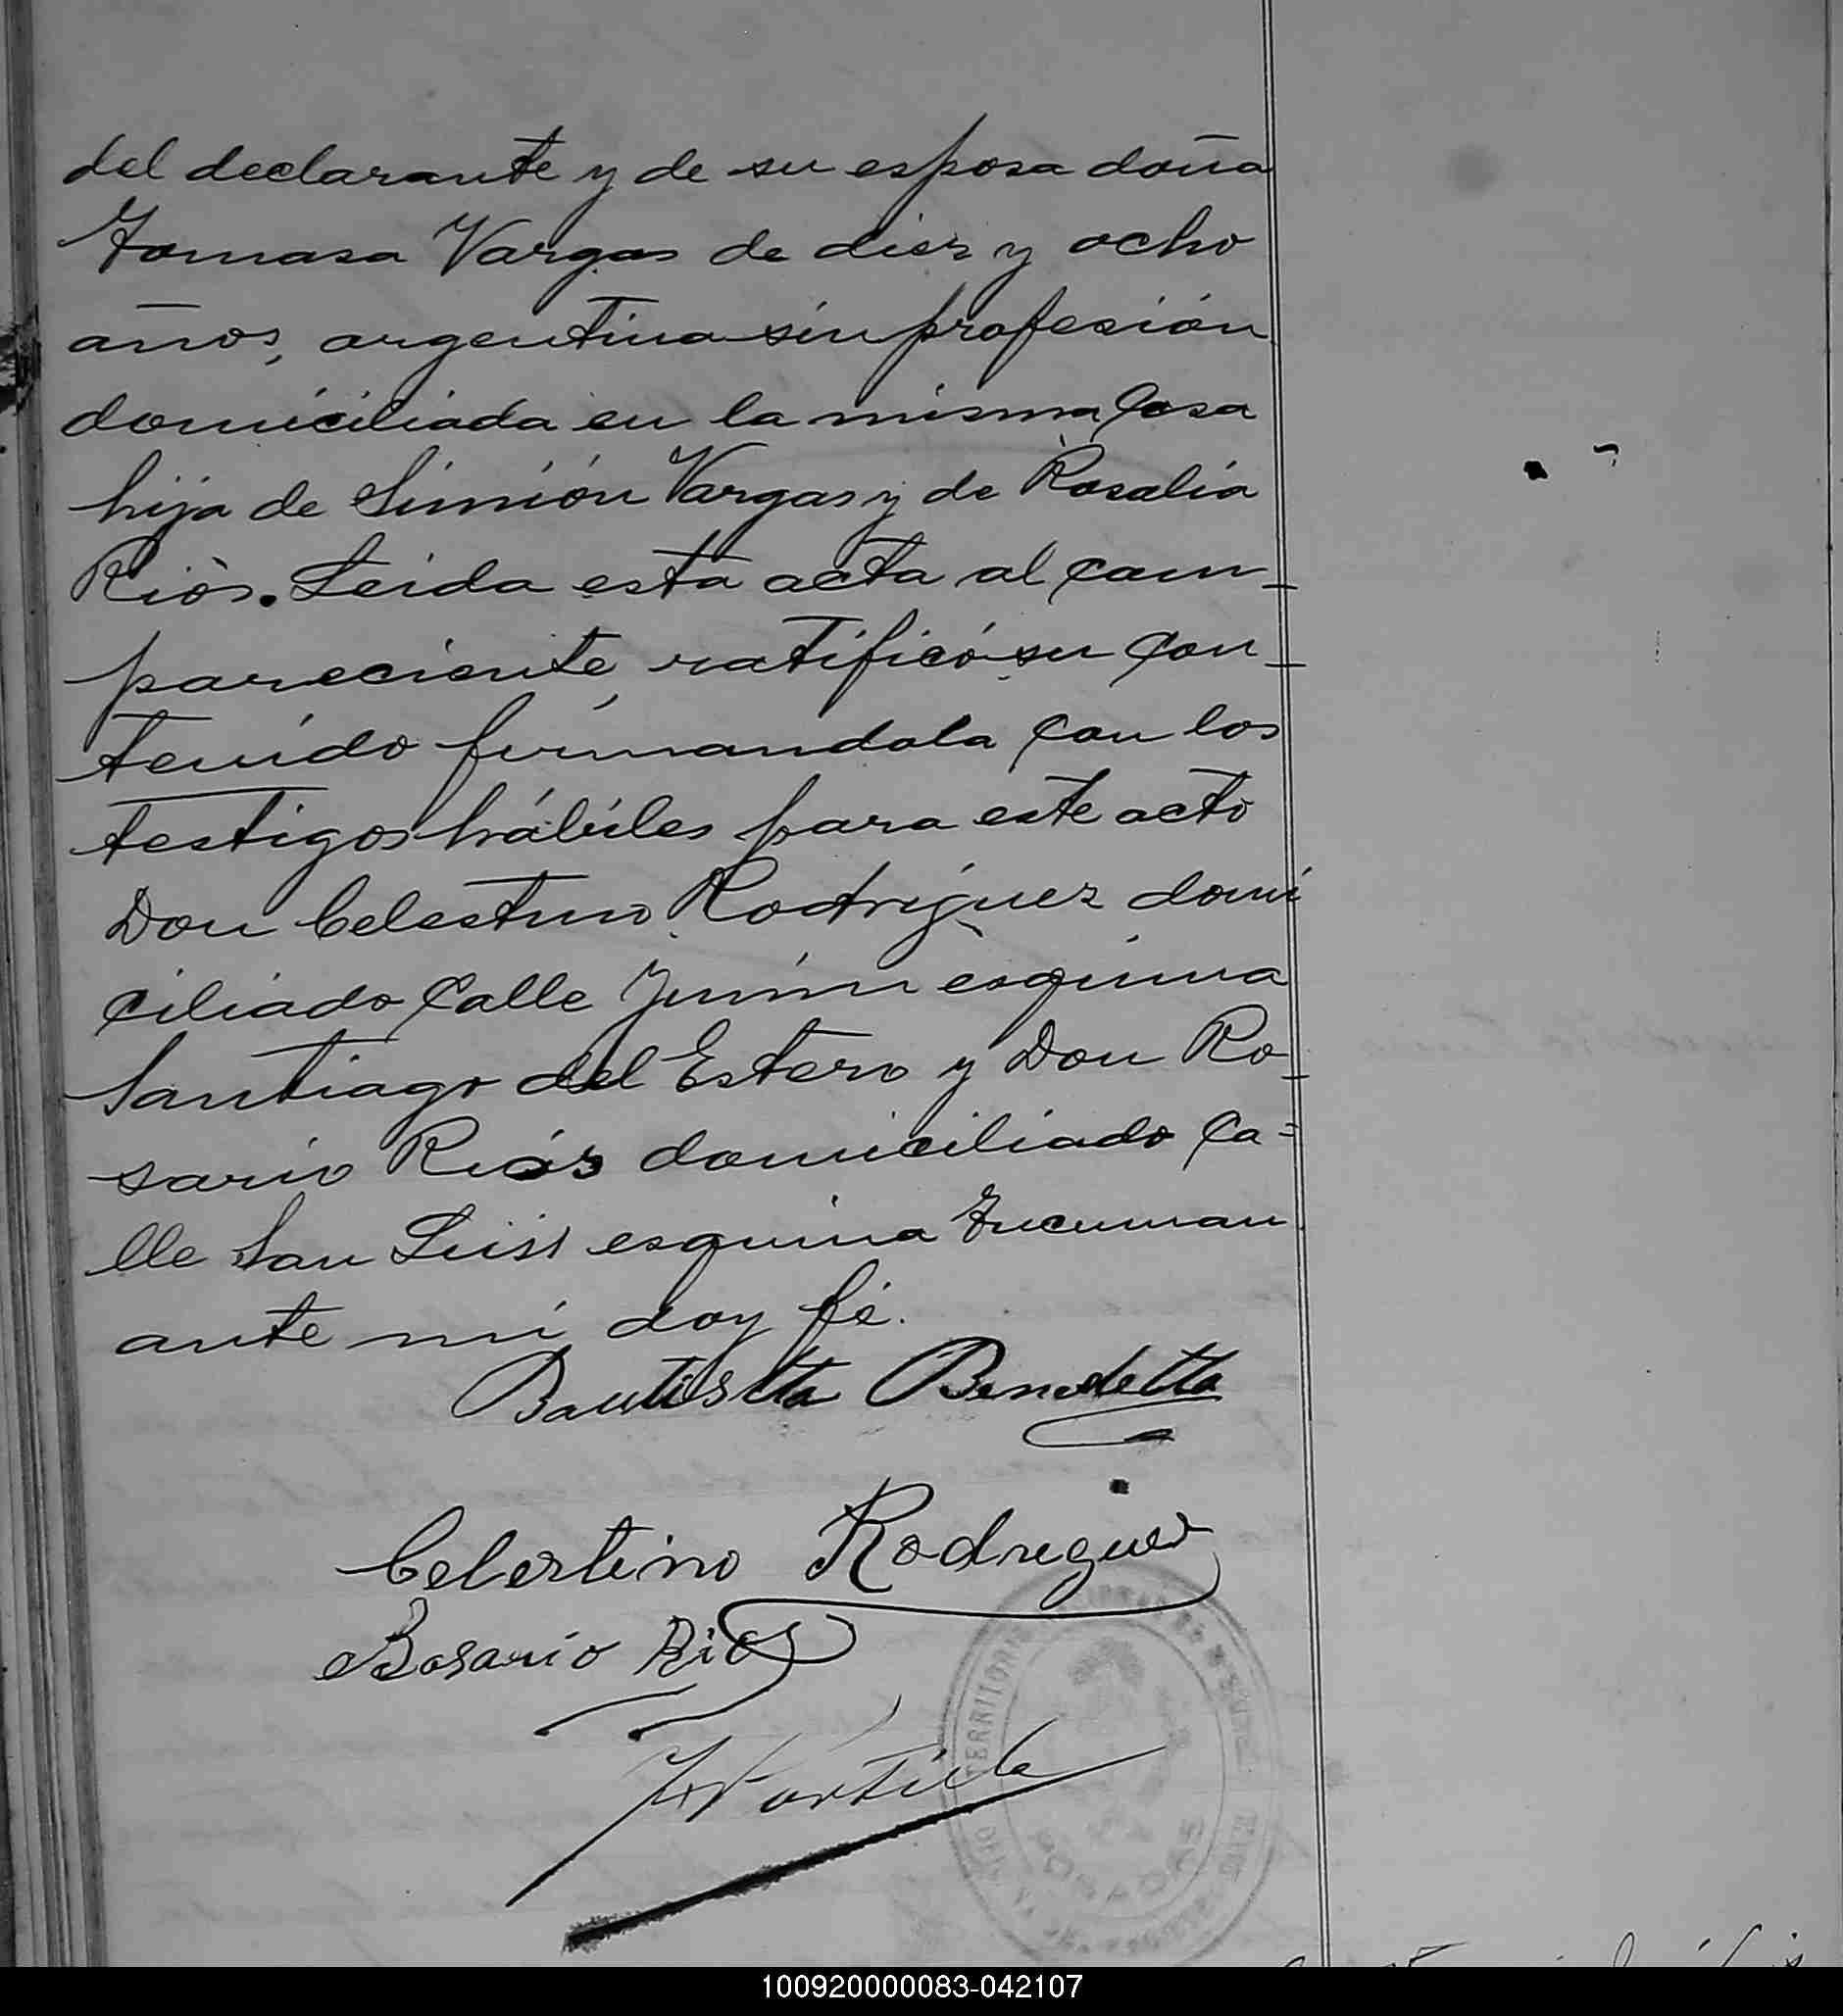 del declarante y de su esposa doña
Tomasa Vargas de diez y ocho
años, argentina sin profesión
domiciliada en la misma casa
hija de Simión Vargas y de Rosalia
Riós. Leida esta acta al com-
pareciente, ratificó su con-
tenido firmandola con los
testigos hábiles para este acto
Don Celestino Rodriguez domi
ciliado calle Junin esquina
Santiago del Estero y Don Ro-
sario Riós domiciliado ca=
lle San Luis esquina Tucuman
ante mi doy fé.
Bautista Benedetta
Celestino Rodriguez
Rosario Rios
TERRITORIO
POSADAS
100920000083-042107